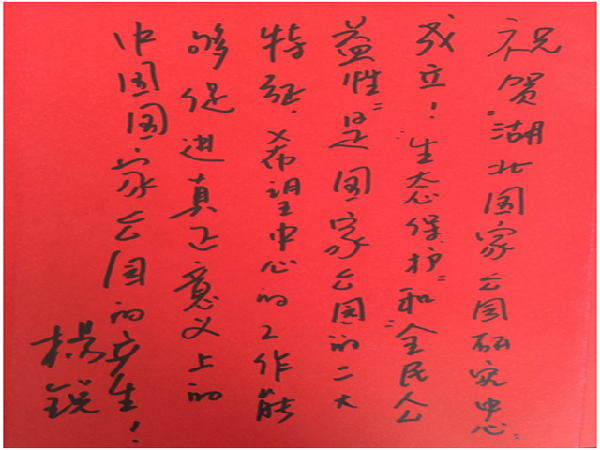 祝贺"湖北国家公园研究中心"
成立！"生态保护"和"全民公
益性"是国家公园的二大
特征.希望中心的工作能
够促进真正意义上的
中国国家公园的产生！
杨锐